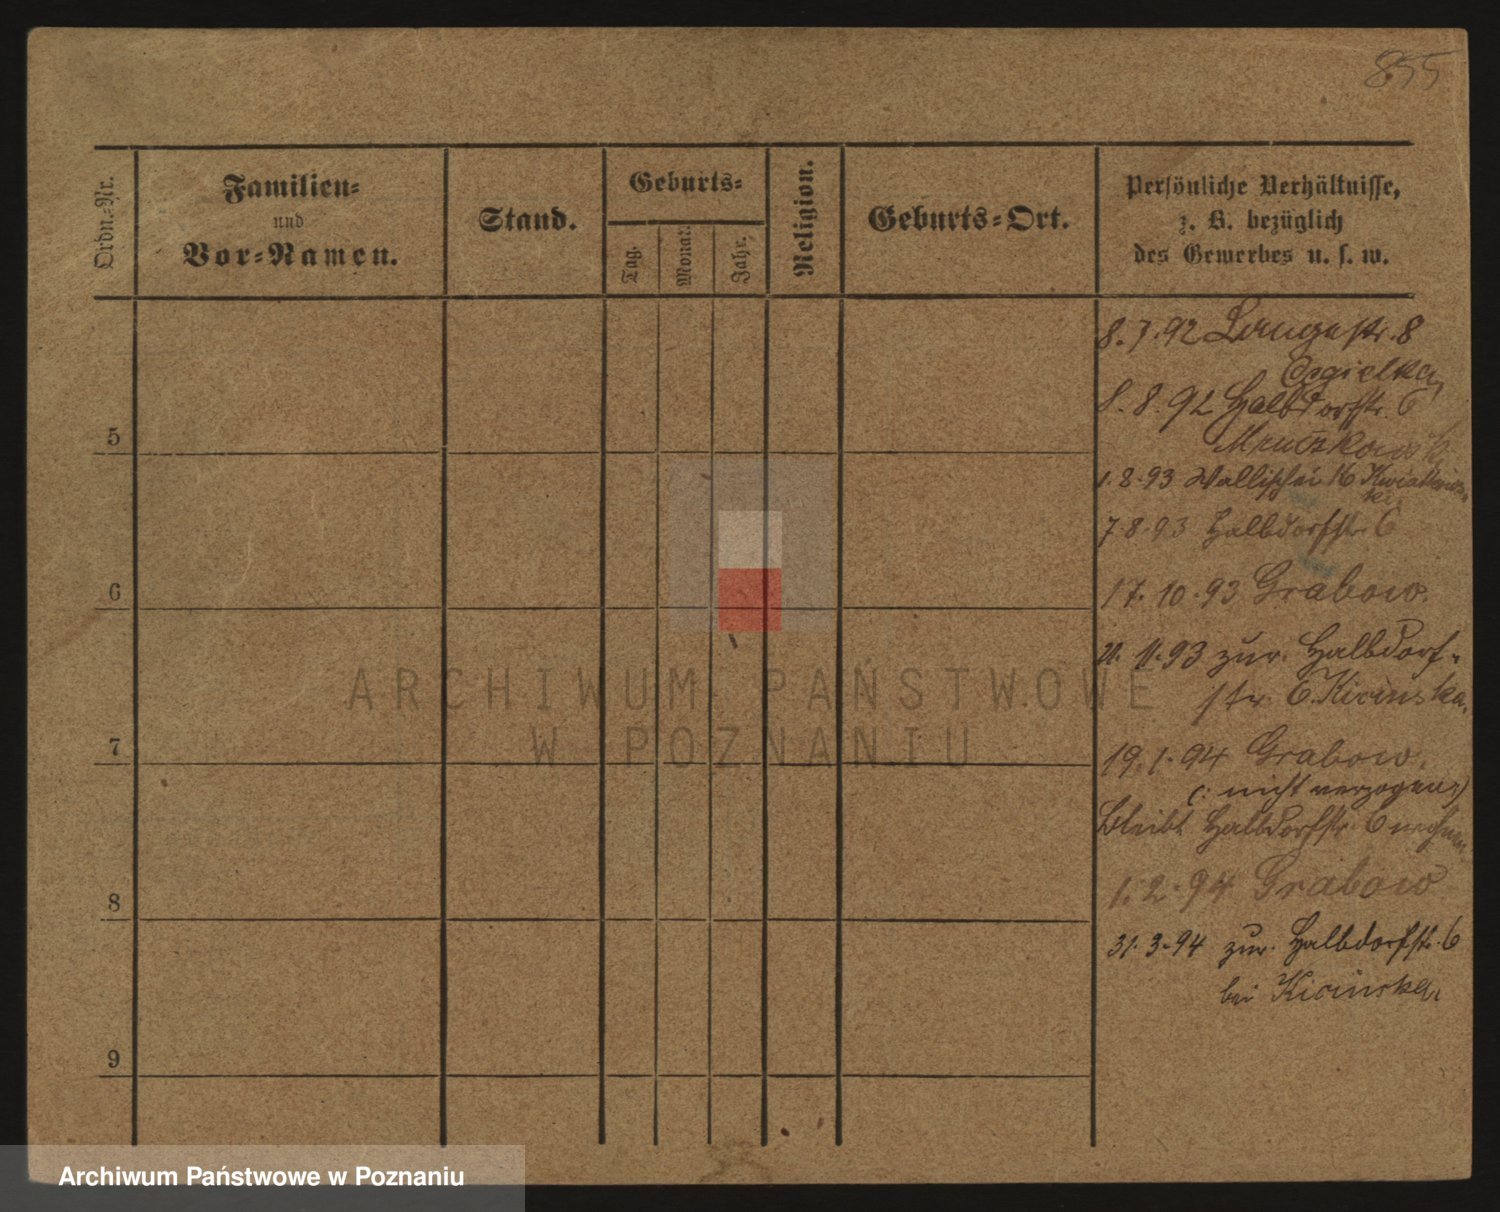 855
Ordn.-Nr.
Familien-
und
Vor-Namen.
Stand.
Geburts-
Tag.
Monat.
Jahr.
Religion.
Geburts-Ort.
Persönliche Verhältnisse,
z. B. bezüglich
des Gewerbes u. s. w.
8.7.92 Langestr. 8
Cegielka,
8.8.92 Halbdorfstr. 6
5
1.8.93 Wallischei 16
7.8.93 Halbdorfstr. 6
6
17.10.93 Grabow.
11.93 zur. Halbdorf-
str. 6. Kicinska.
7
19.1.94 Grabow.
(: nicht verzogen :)
bleibt Halbdorfstr. 6 wohnen
8
1.2.94 Grabow
31.3.94 zur. Halbdorfstr. 6
bei Kicinska,
9
ARCHIWUM PAŃSTWOWE
W POZNANIU
Archiwum Państwowe w Poznaniu